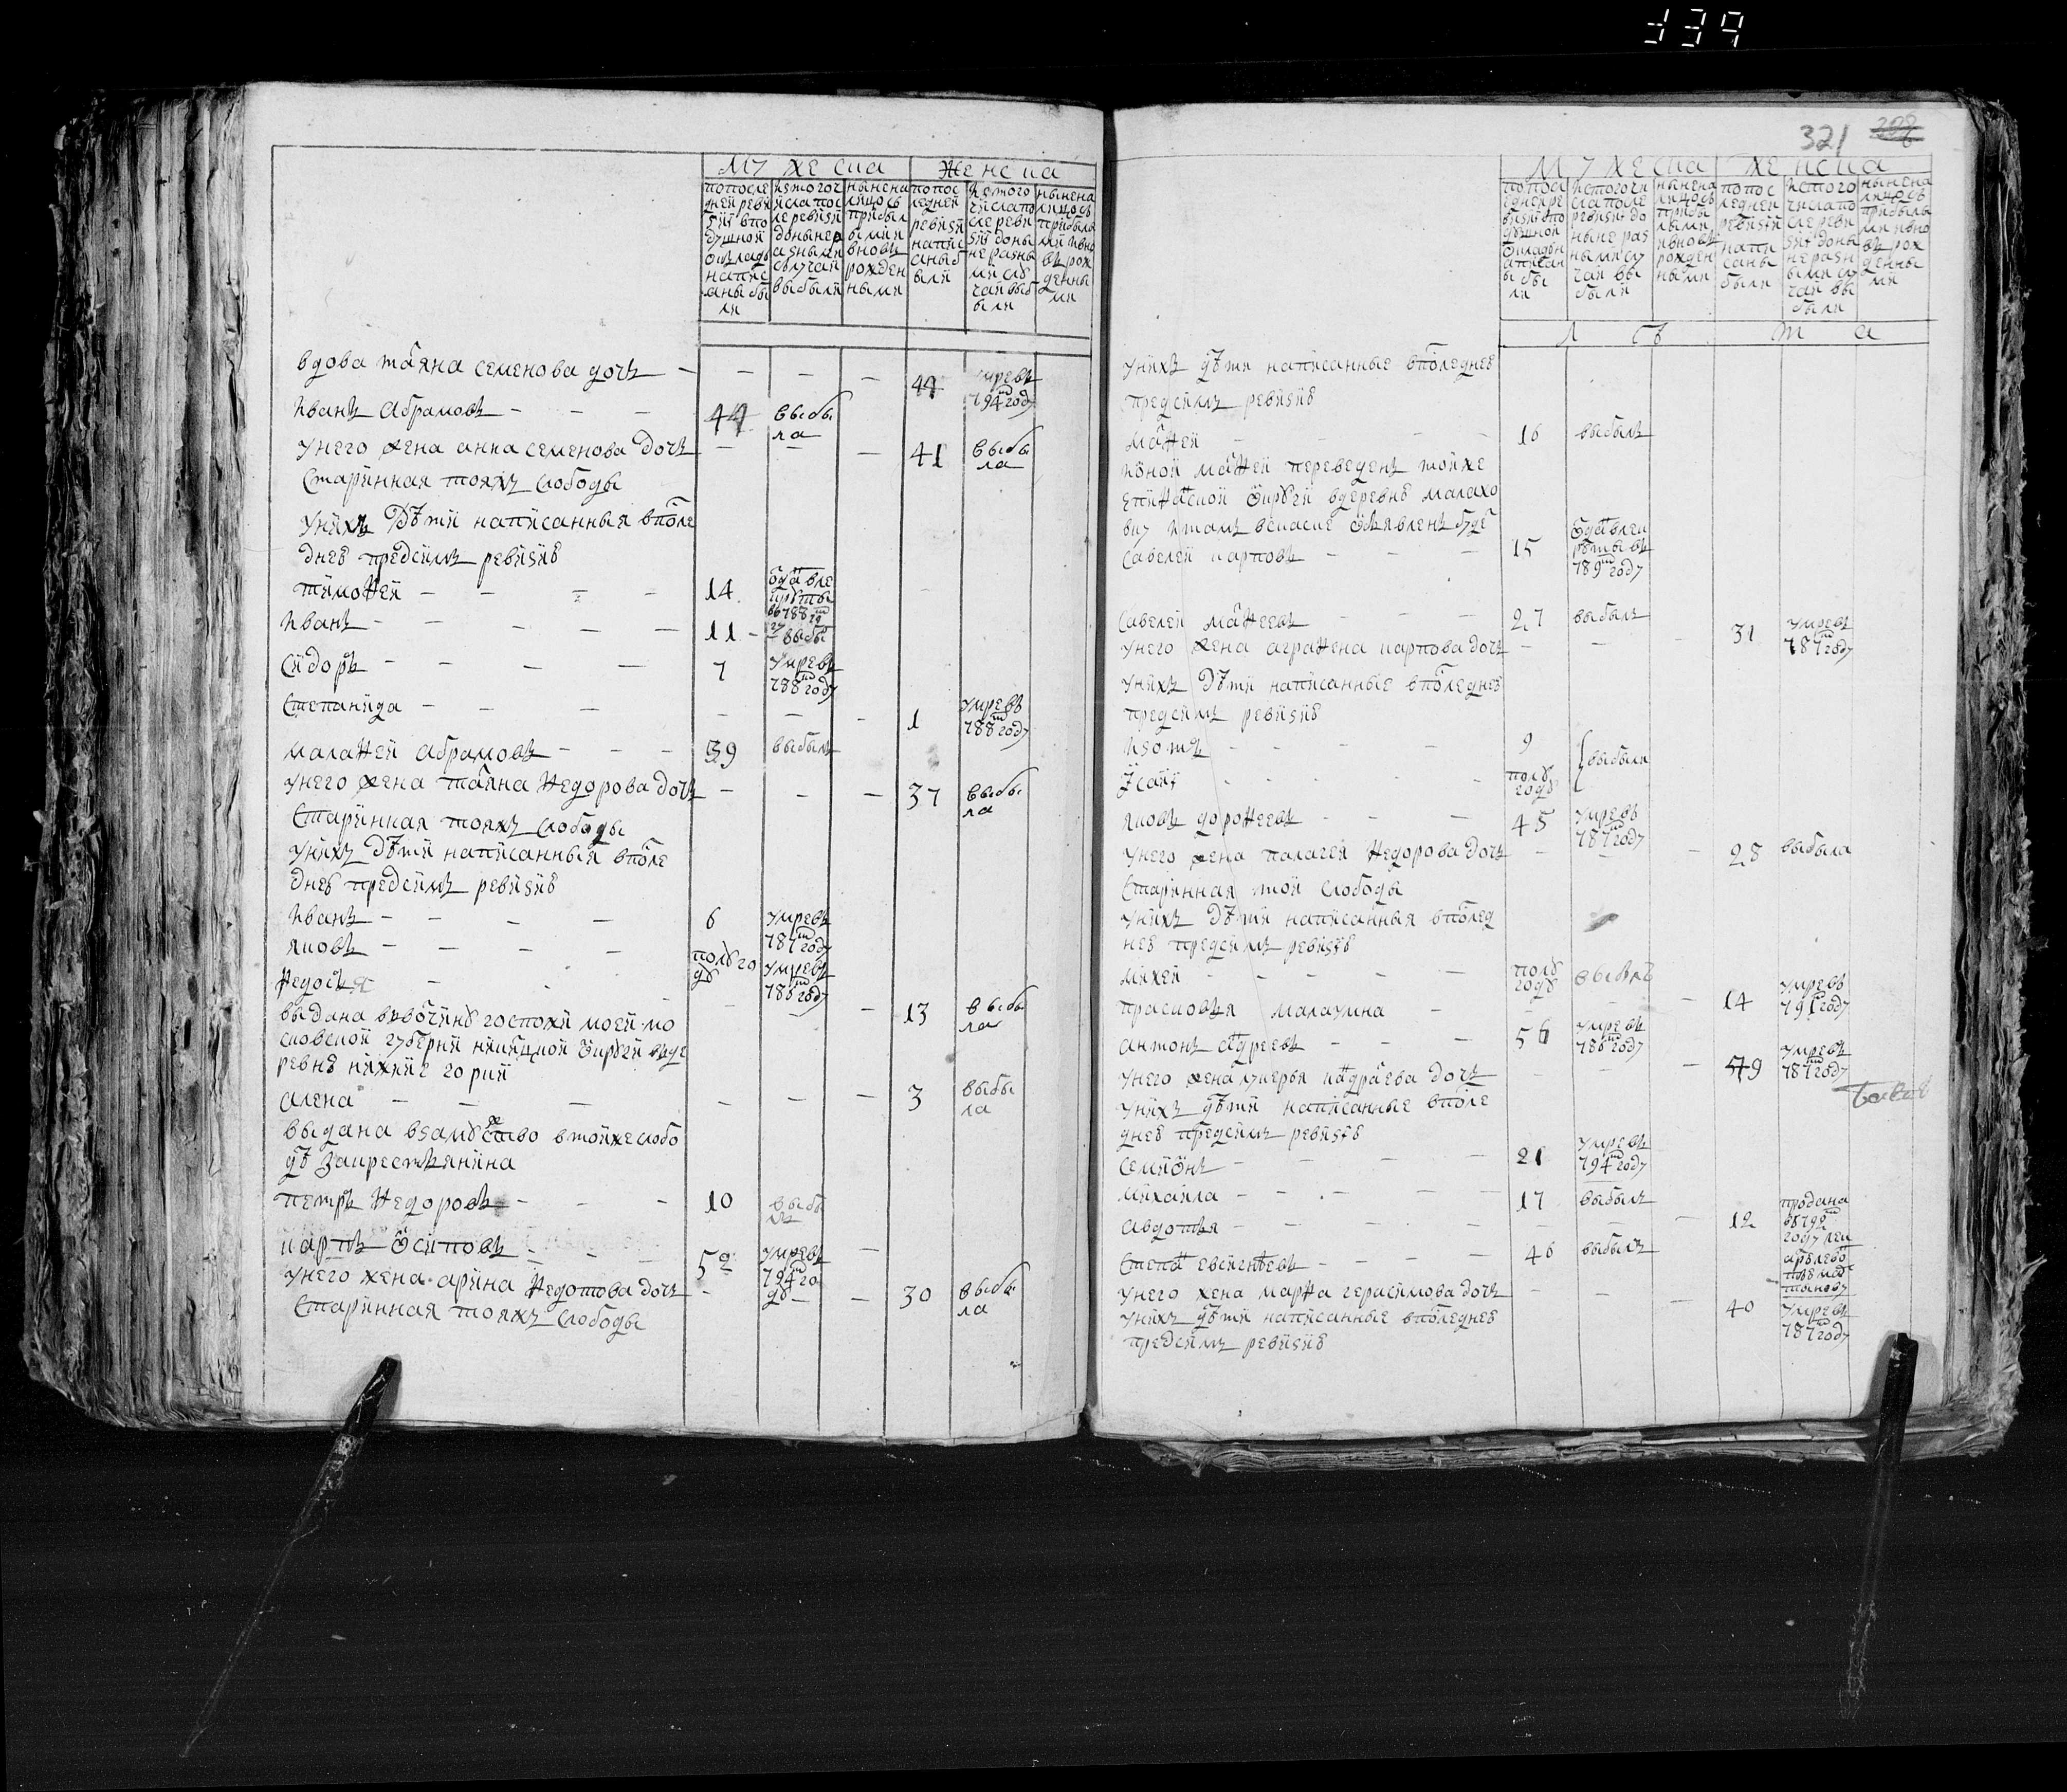 339
мужеска женска
попосле дней ревизіи вподушной окладъ написаны были
истого числа после ревизіи доныне разными случаи выбыли
ныне налицо съ прибылыми и вновь рожденными
попоследней ревизіи написаны были
истого числа после ревизіи доныне разными случаи выбыли
ныне налицо съ прибылыми и вновь рожденными
вдова татяна семенова дочь — — — — 44 умре въ 794м году
иванъ абрамовъ — — — 44 выбыла
унего жена анна семенова дочь — — — 41 выбыла
старинная тояжъ слободы
унихъ дѣти написанныя впосле
днеѣ предсимъ ревизиѣ
тимоѳей — — — — 14 отдавъ рекруты въ 788м году
иванъ — — — — 11 выбы
сидоръ — — — — 7 умре въ 788м году
степанида — — — — — — 1 умре въ 788м году
малаѳей абрамовъ — — — 39 выбылъ
унего жена татяна ѳедорова дочь — — — 37 выбыла
старинная тояжъ слободы
унихъ дѣти написанныя впосле
днеѣ предсимъ ревизиѣ
иванъ — — — — 6 умре въ 787м году
яковъ — — — — полу году умре въ 786м году
ѳедосья — — — — — 13 выбыла
выдана въвотчину госпожи моей мо
сковской губерніи никитцкой округи въде
ревню нижние горки
алена — — — — — — 3 выбыла
выдана взамужество втойже слобо
дѣ закрестьянина
петръ ѳедоровъ — — — 10 выбылъ
карпъ осиповъ — — 52 умре въ 794м году —
унего жена арина ѳедотова дочь — — — 30 выбыла
старинная тояжъ слободы
321
мужеска женска
попоследней ревизіи вподушной окладъ написаны были
истого числа после ревизіи доныне разными случаи выбыли
ныне налицо съ прибылыми и вновь рожденными
попоследней ревизіи написаны были
истого числа после ревизіи доныне разными случаи выбыли
ныне налицо съ прибылыми и вновь рожденными
л ѣ т а
унихъ дѣти написанные впоследнеѣ
предсимъ ревизиѣ
матѳей — — — 16 выбылъ
ионой матѳей переведенъ тойже
епиѳанской округи вдеревню малахо
вку итамъ всказке объявленъ будетъ
савелей карповъ — — — 15 отдавъ рекруты въ 789м году
савелей матѳеевъ — — — 27 выбылъ
унего жена аграѳена карпова дочь — — — 31 умре въ 787м году
унихъ дѣти написанные впоследнеѣ
предсимъ ревизиѣ
изотъ — — — 9
исай — — — полу году выбыли
яковъ дороѳеевъ — — — 45 умре въ 787м году
унего жена палагея ѳедорова дочь — — — 28 выбыла
старинная той слободы
унихъ дѣти написанныя впослед
неѣ предсимъ ревизіѣ
михей — — — — полу году выбылъ
прасковья малаумна — — — 14 умре въ 791м году
антонъ андреевъ — — — 56 умре въ 786м году
унего жена лукерья кондратева дочь — — — 49 умре въ 787м году
унихъ дѣти написанные впосле
днеѣ предсимъ ревизіѣ
семионъ — — — — 21 умре въ 794м году
михаила — — — — 17 выбылъ
авдотья — — — — — — — 12 продана въ 792м году
степанъ евсигнѣевъ — — — 46 выбылъ
унего жена марѳа герасимова дочь — — — 40 умре въ 787м году
унихъ дѣти написанные впоследнеѣ
предсимъ ревизиѣ